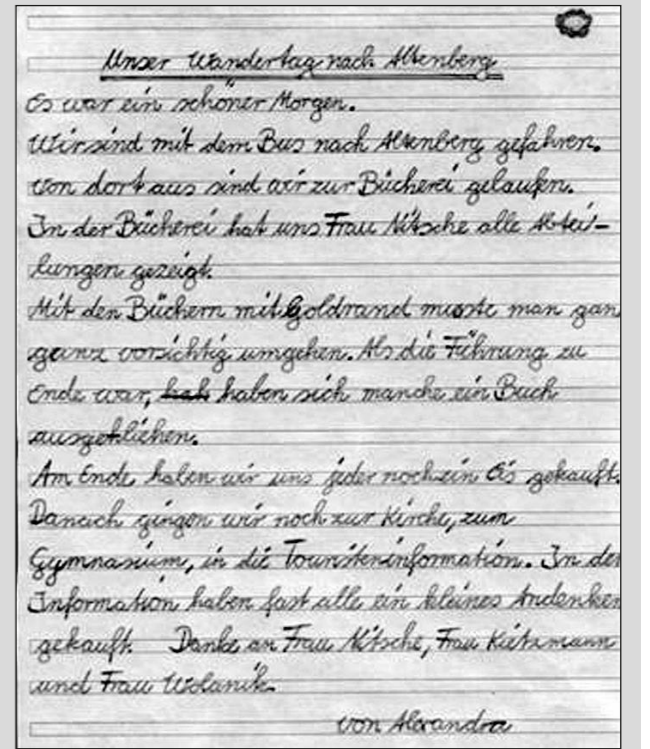 Unser Wandertag nach Altenberg
Es war ein schöner Morgen.
Wir sind mit dem Bus nach Altenberg gefahren.
Von dort aus sind wir zur Bücherei gelaufen.
In der Bücherei hat uns Frau Nitsche alle Abtei-
lungen gezeigt.
Mit den Büchern mit Goldrand musste man gan
ganz vorsichtig umgehen. Als die Führung zu
Ende war, hah haben sich manche ein Buch
ausgehliehen.
Am Ende haben wir uns jeder noch ein Eis gekauft.
Danach gingen wir noch zur Kirche, zum
Gymnasium, in die Touristeninformation. In der
Information haben fast alle ein kleines Andenken
gekauft. Danke an Frau Nitsche, Frau Kietzmann
und Frau Wolanik.
von Alexandra